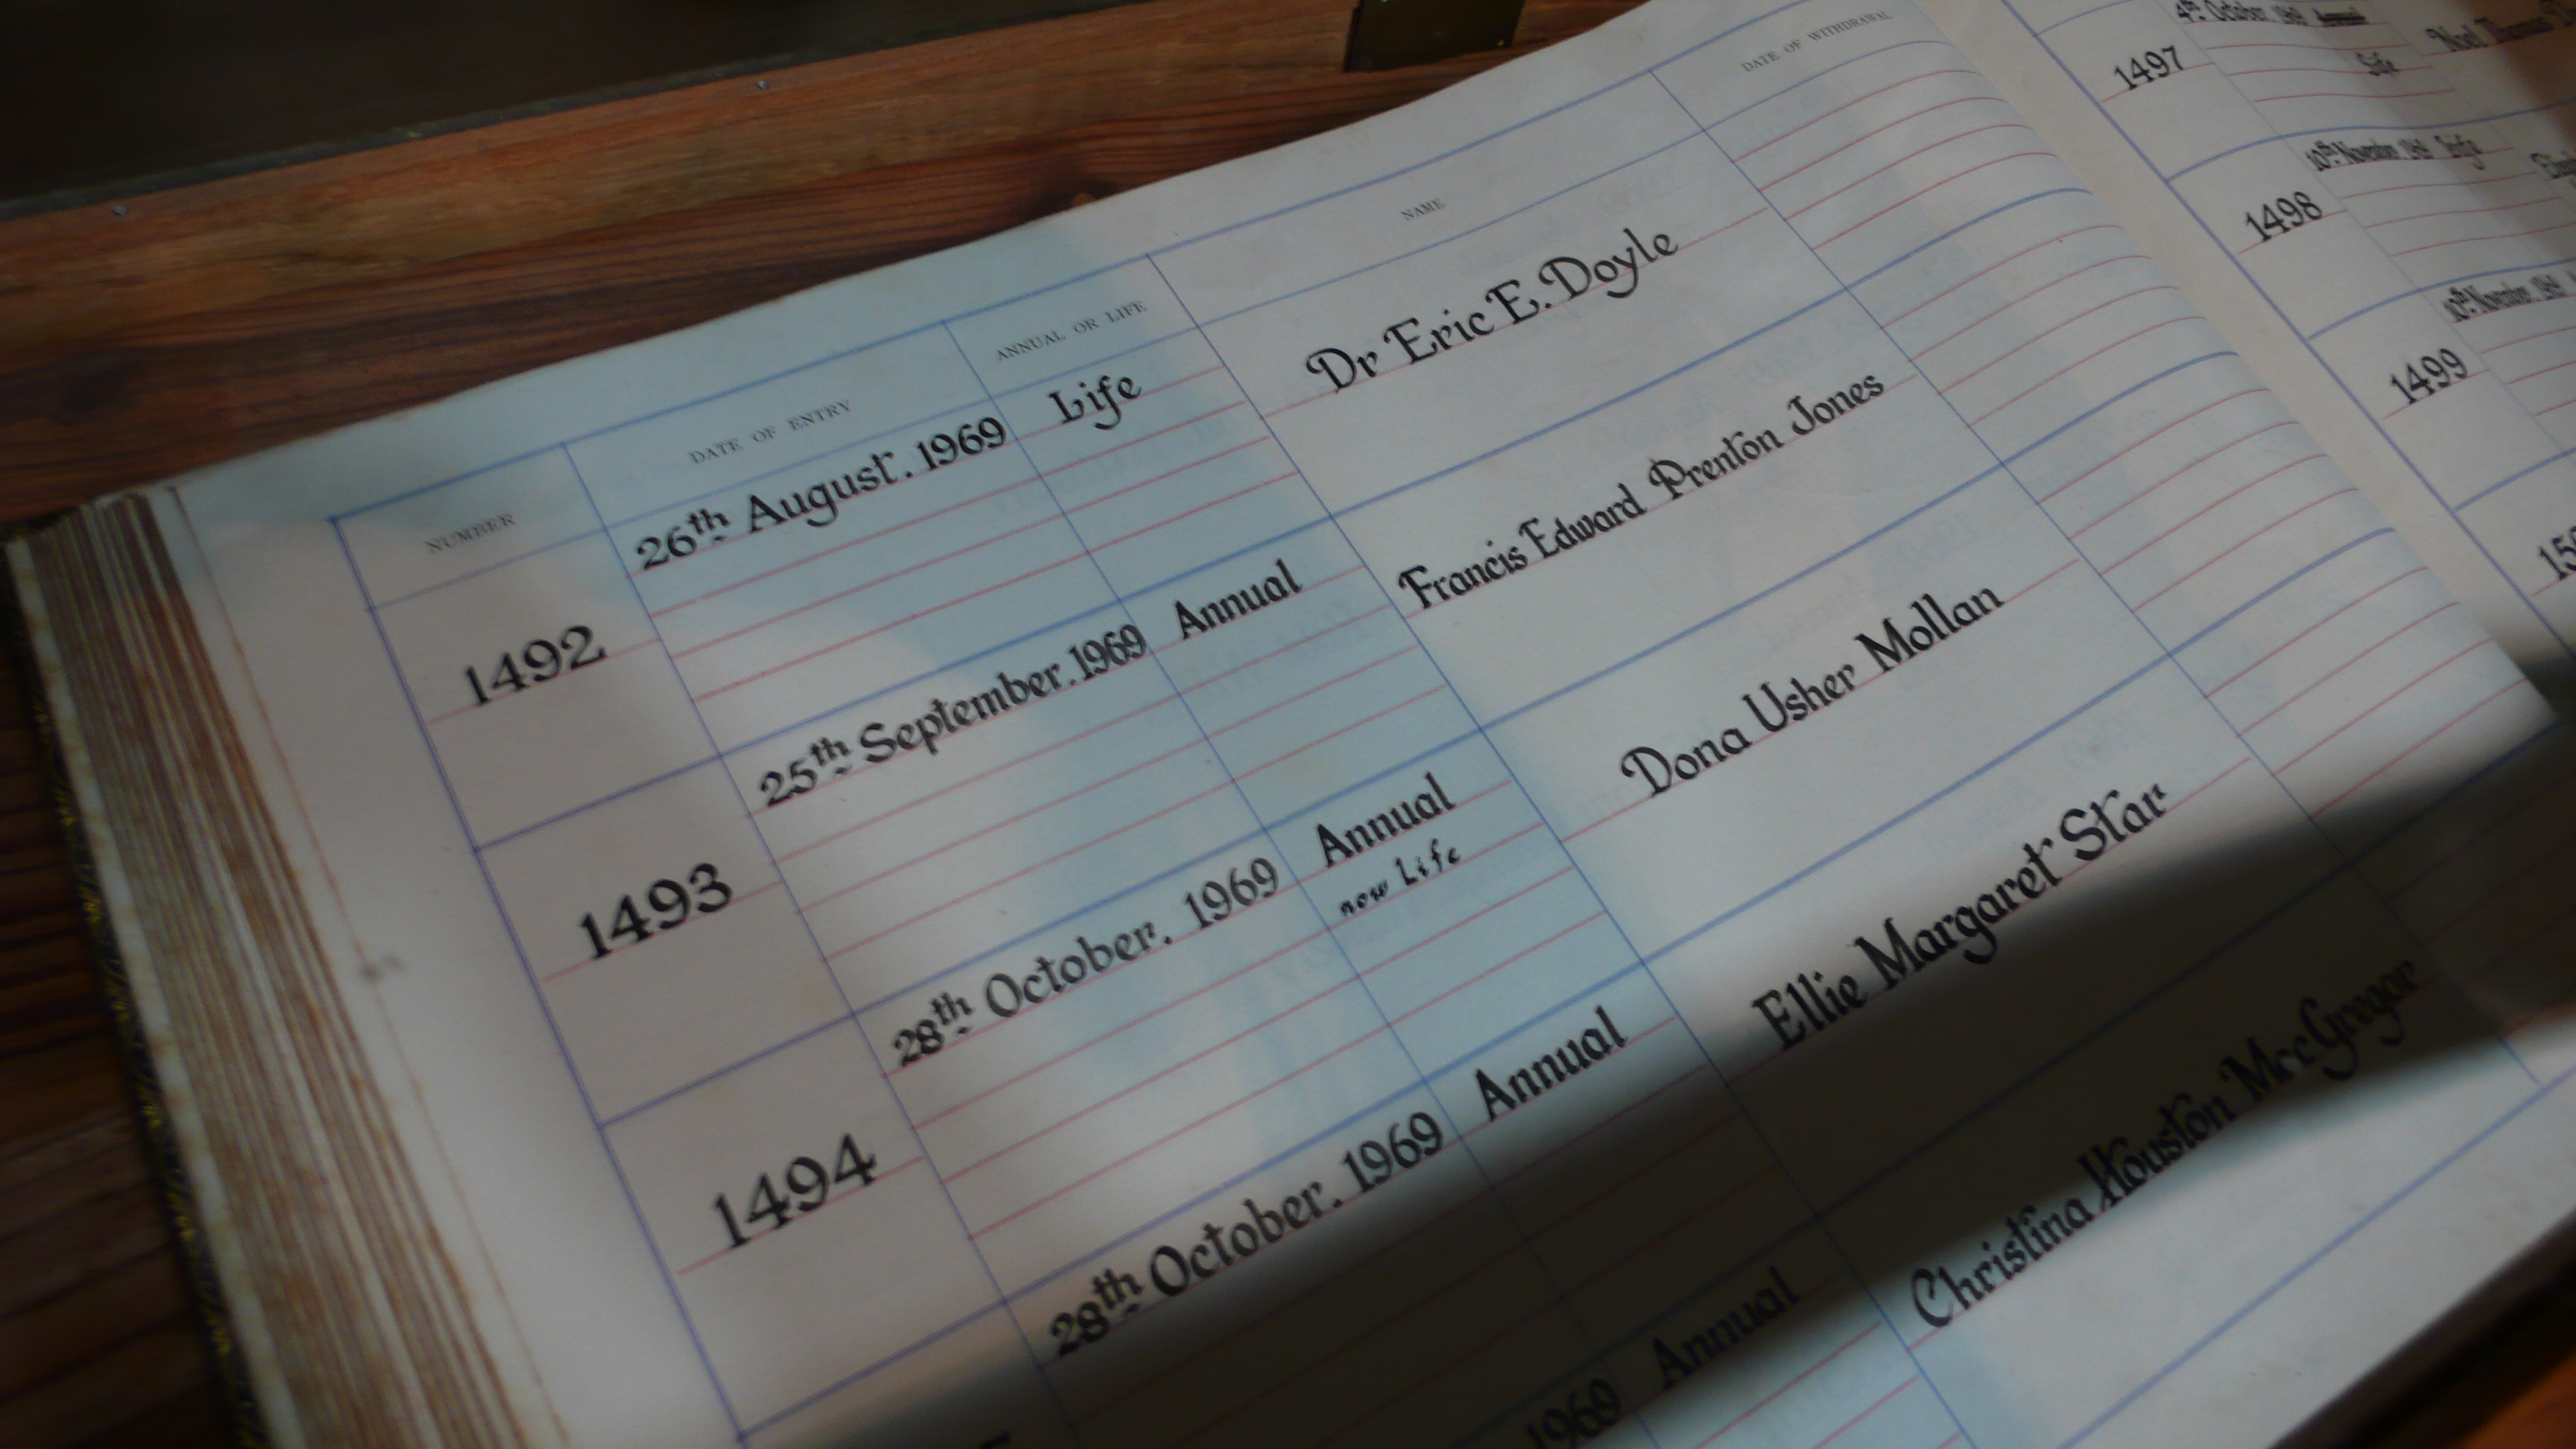 NUMBER DATE OF ENTRY ANNUAL OR LIFE NAME DATE OF WITHDRAWAL
1492 26th August. 1969 Life Dr Eric E. Doyle
1493 25th September. 1969 Annual Francis Edward Prenton Jones
1494 28th October. 1969 Annual Dona Usher Mollan
now Life
28th October. 1969 Annual Ellie Margaret Star
1969 Annual Christina Houston MccGregor
1497 4th October Life Noel Thomas
1498 10th November Life
1499 10th November